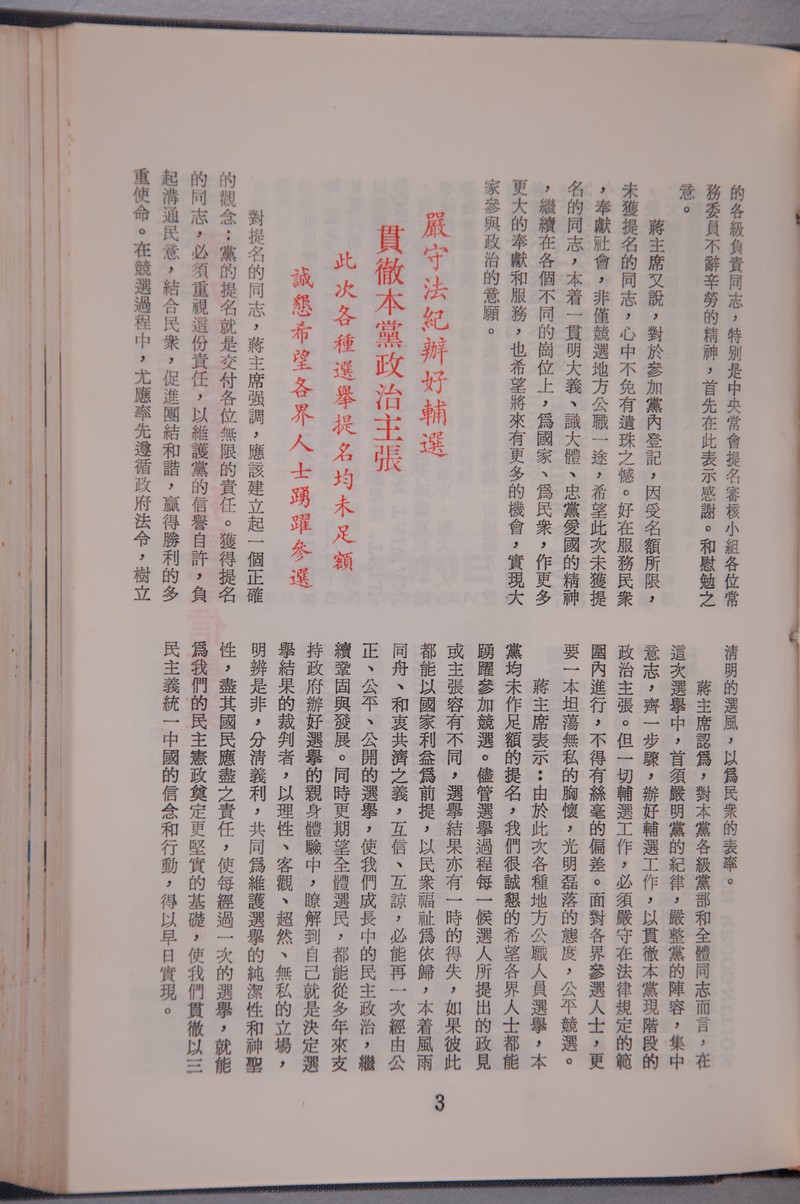 的各級負責同志，特別是中央常會提名審核小組各位常
務委員不辭辛勞的精神，首先在此表示感謝。和慰勉之
意。
蔣主席又說，對於參加黨內登記，因受名額所限，
未獲提名的同志，心中不免有遺珠之憾。好在服務民衆
，奉獻社會，非僅競選地方公職一途，希望此次未獲提
名的同志，本着一貫明大義、識大體、忠黨愛國的精神
，繼續在各個不同的崗位上，爲國家、爲民衆，作更多
更大的奉獻和服務，也希望將來有更多的機會，實現大
家參與政治的意願。
嚴守法紀辦好輔選
貫徹本黨政治主張
此次各種選舉提名均未足額
誠懇希望各界人士踴躍參選
對提名的同志，蔣主席强調，應該建立起一個正確
的觀念：黨的提名就是交付各位無限的責任。獲得提名
的同志，必須重視這份責任，以維護黨的信譽自許，負
起溝通民意，結合民衆，促進團結和諧，贏得勝利的多
重使命。在競選過程中，尤應率先遵循政府法令，樹立
清明的選風，以爲民衆的表率。
蔣主席認爲，對本黨各級黨部和全體同志而言，在
這次選舉中，首須嚴明黨的紀律，嚴整黨的陣容，集中
意志，齊一步驟，辦好輔選工作，以貫徹本黨現階段的
政治主張。但一切輔選工作，必須嚴守在法律規定的範
圍內進行，不得有絲毫的偏差。面對各界參選人士，更
要一本坦蕩無私的胸懷，光明磊落的態度，公平競選。
蔣主席表示：由於此次各種地方公職人員選舉，本
黨均未作足額的提名，我們很誠懇的希望各界人士都能
踴躍參加競選。儘管選舉過程每一候選人所提出的政見
或主張容有不同，選舉結果亦有一時的得失，如果彼此
都能以國家利益爲前提，以民衆福祉爲依歸，本着風雨
同舟、和衷共濟之義，互信、互諒，必能再一次經由公
正、公平、公開的選舉，使我們成長中的民主政治，繼
續鞏固與發展。同時更期望全體選民，都能從多年來支
持政府辦好選舉的親身體驗中，瞭解到自己就是決定選
舉結果的裁判者，以理性、客觀、超然、無私的立場，
明辨是非，分清義利，共同爲維護選舉的純潔性和神聖
性，盡其國民應盡之責任，使每經過一次的選舉，就能
爲我們的民主憲政奠定更堅實的基礎，使我們貫徹以三
民主義統一中國的信念和行動，得以早日實現。
3